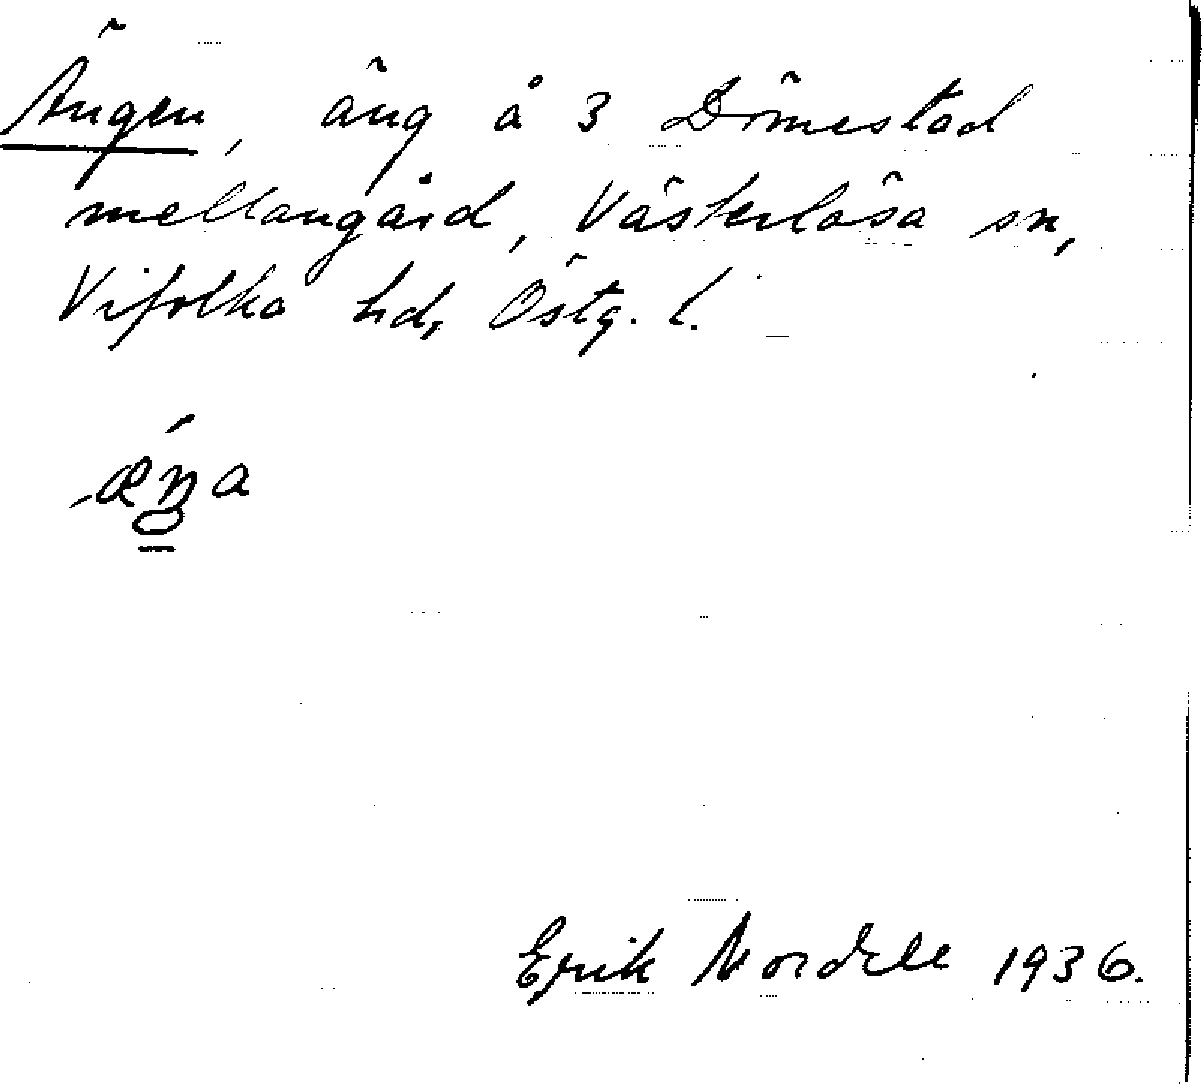 Ängen, äng å 3 Dömestad
mellangård, Västerlösa sn,
Vifolka hd, Östg. l.
ǽŋa
Erik Nordell 1936.